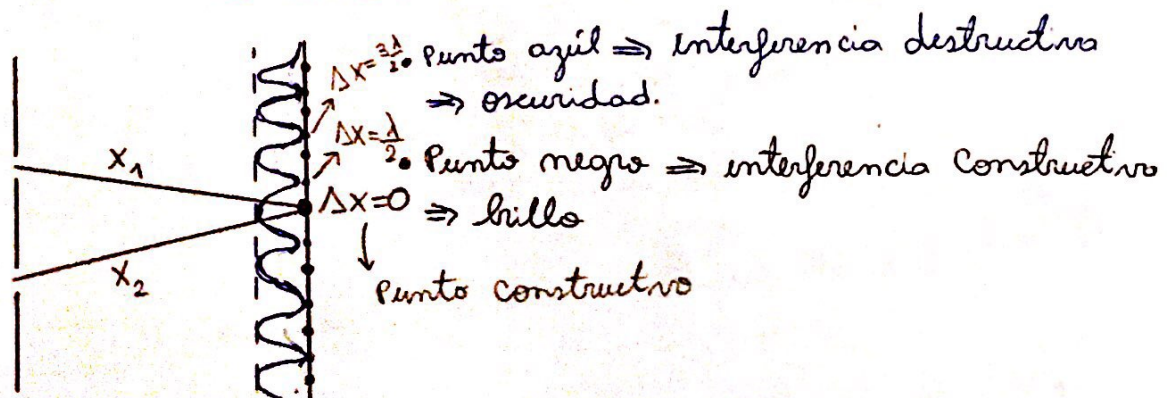 Δx=3λ/2 • Punto azúl ⇒ interferencia destructiva
⇒ oscuridad.
Δx=λ/2 • Punto negro ⇒ interferencia constructiva
Δx=0 ⇒ brillo
Punto constructivo
x₁
x₂